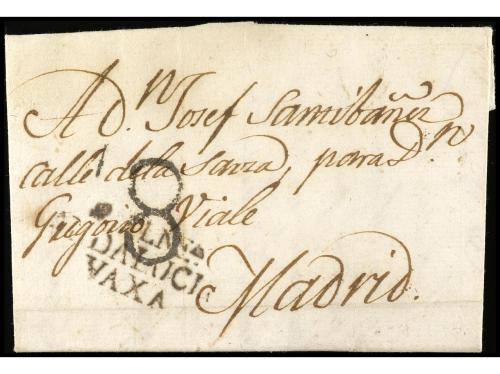 A D.n Josef Santibañez
calle dela Sarza, para D.n
Gregorio Viale
8
DALUCI
VAXA
Madrid.